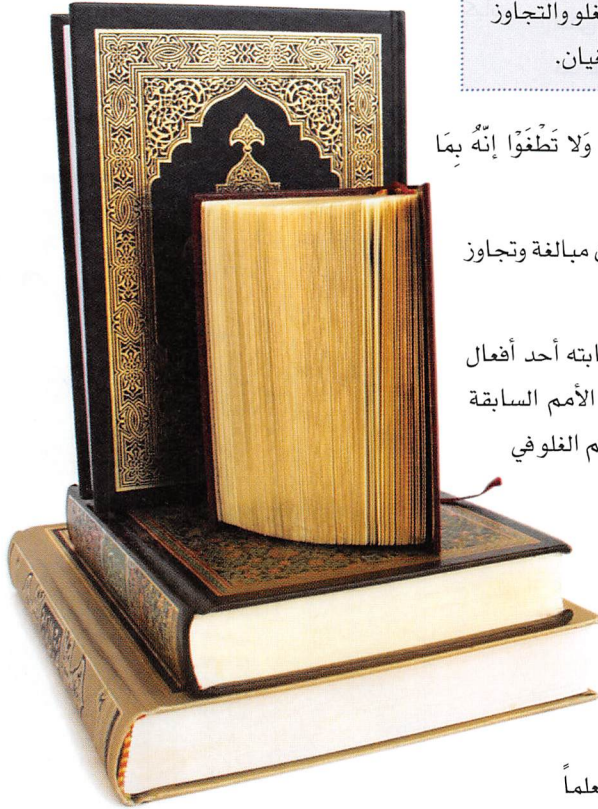 غلو والتجاوز
فيان.
وَلا تَطْغَوْا إِنَّهُ بِمَا
مبالغة وتجاوز
ابته أحد أفعال
الأمم السابقة
م الغلو في
علماً